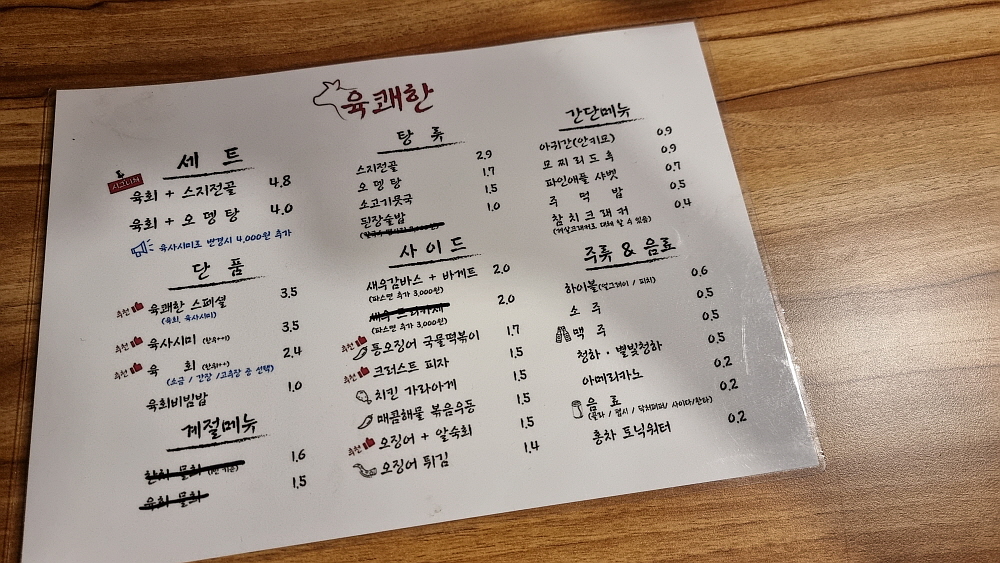 육쾌한
세 트
시그니처
육회 + 스지전골 4.8
육회 + 오뎅탕 4.0
육사시미로 변경시 4,000원 추가
단 품
추천 육쾌한 스페셜 3.5
(육회, 육사시미)
추천 육사시미 (한우++) 3.5
추천 육 회 (한우++) 2.4
(소금 / 간장 / 고추장 중 선택)
육회비빔밥 1.0
계절메뉴
한치 물회 1.6
육회 물회 1.5
탕 류
스지전골 2.9
오뎅탕 1.7
소고기뭇국 1.5
된장술밥 1.0
사이드
새우감바스 + 바게트 2.0
(파스면 추가 3,000원)
2.0
(파스면 추가 3,000원)
추천 통오징어 국물떡볶이 1.7
추천 크러스트 피자 1.5
치킨 가라아게 1.5
매콤해물 볶음우동 1.5
추천 오징어 + 알숙회 1.5
오징어 튀김 1.4
간단메뉴
아귀간(안키모) 0.9
모찌리도후 0.9
파인애플 샤벳 0.7
주 먹 밥 0.5
참치크래커 0.4
주류 & 음료
하이볼(얼그레이 / 피치) 0.6
소 주 0.5
맥 주 0.5
청하 · 별빛청하 0.5
아메리카노 0.2
음 료 0.2
(콜라 / 펩시 / 닥터페퍼 / 사이다/환타)
홍차 토닉워터 0.2